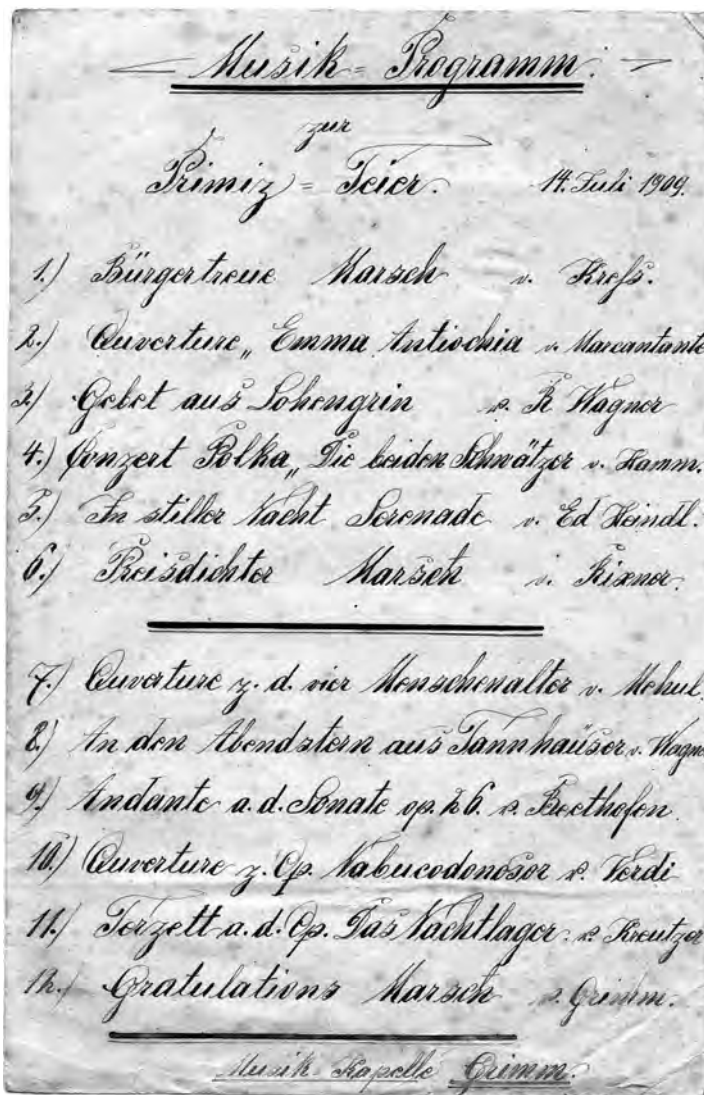 Musik=Programm.
zur
Primiz=Feier. 14. Juli 1909.
1.) Bürgertreue Marsch v. Kreß.
2.) Ouverture „Emma Antiochia v. Marcantante
3.) Gebet aus Lohengrin v. R Wagner
4.) Conzert Polka „Die beiden Schwätzer v. Hamm.
5.) In stiller Nacht Serenade v. Ed Heindl.
6.) Preisdichter Marsch v. Rixner.
7.) Ouverture z. d. vier Menschenalter v. Mehul.
8.) An den Abendstern aus Tannhaüser v. Wagne
9.) Andante a. d. Sonate op. 26. v. Beethofen.
10.) Ouverture z. Op. Nabucodonosor v. Verdi
11.) Terzett a. d. Op. Das Nachtlager. v. Kreutzer
12.) Gratulations Marsch v. Grimm.
Musik-Kapelle Grimm.